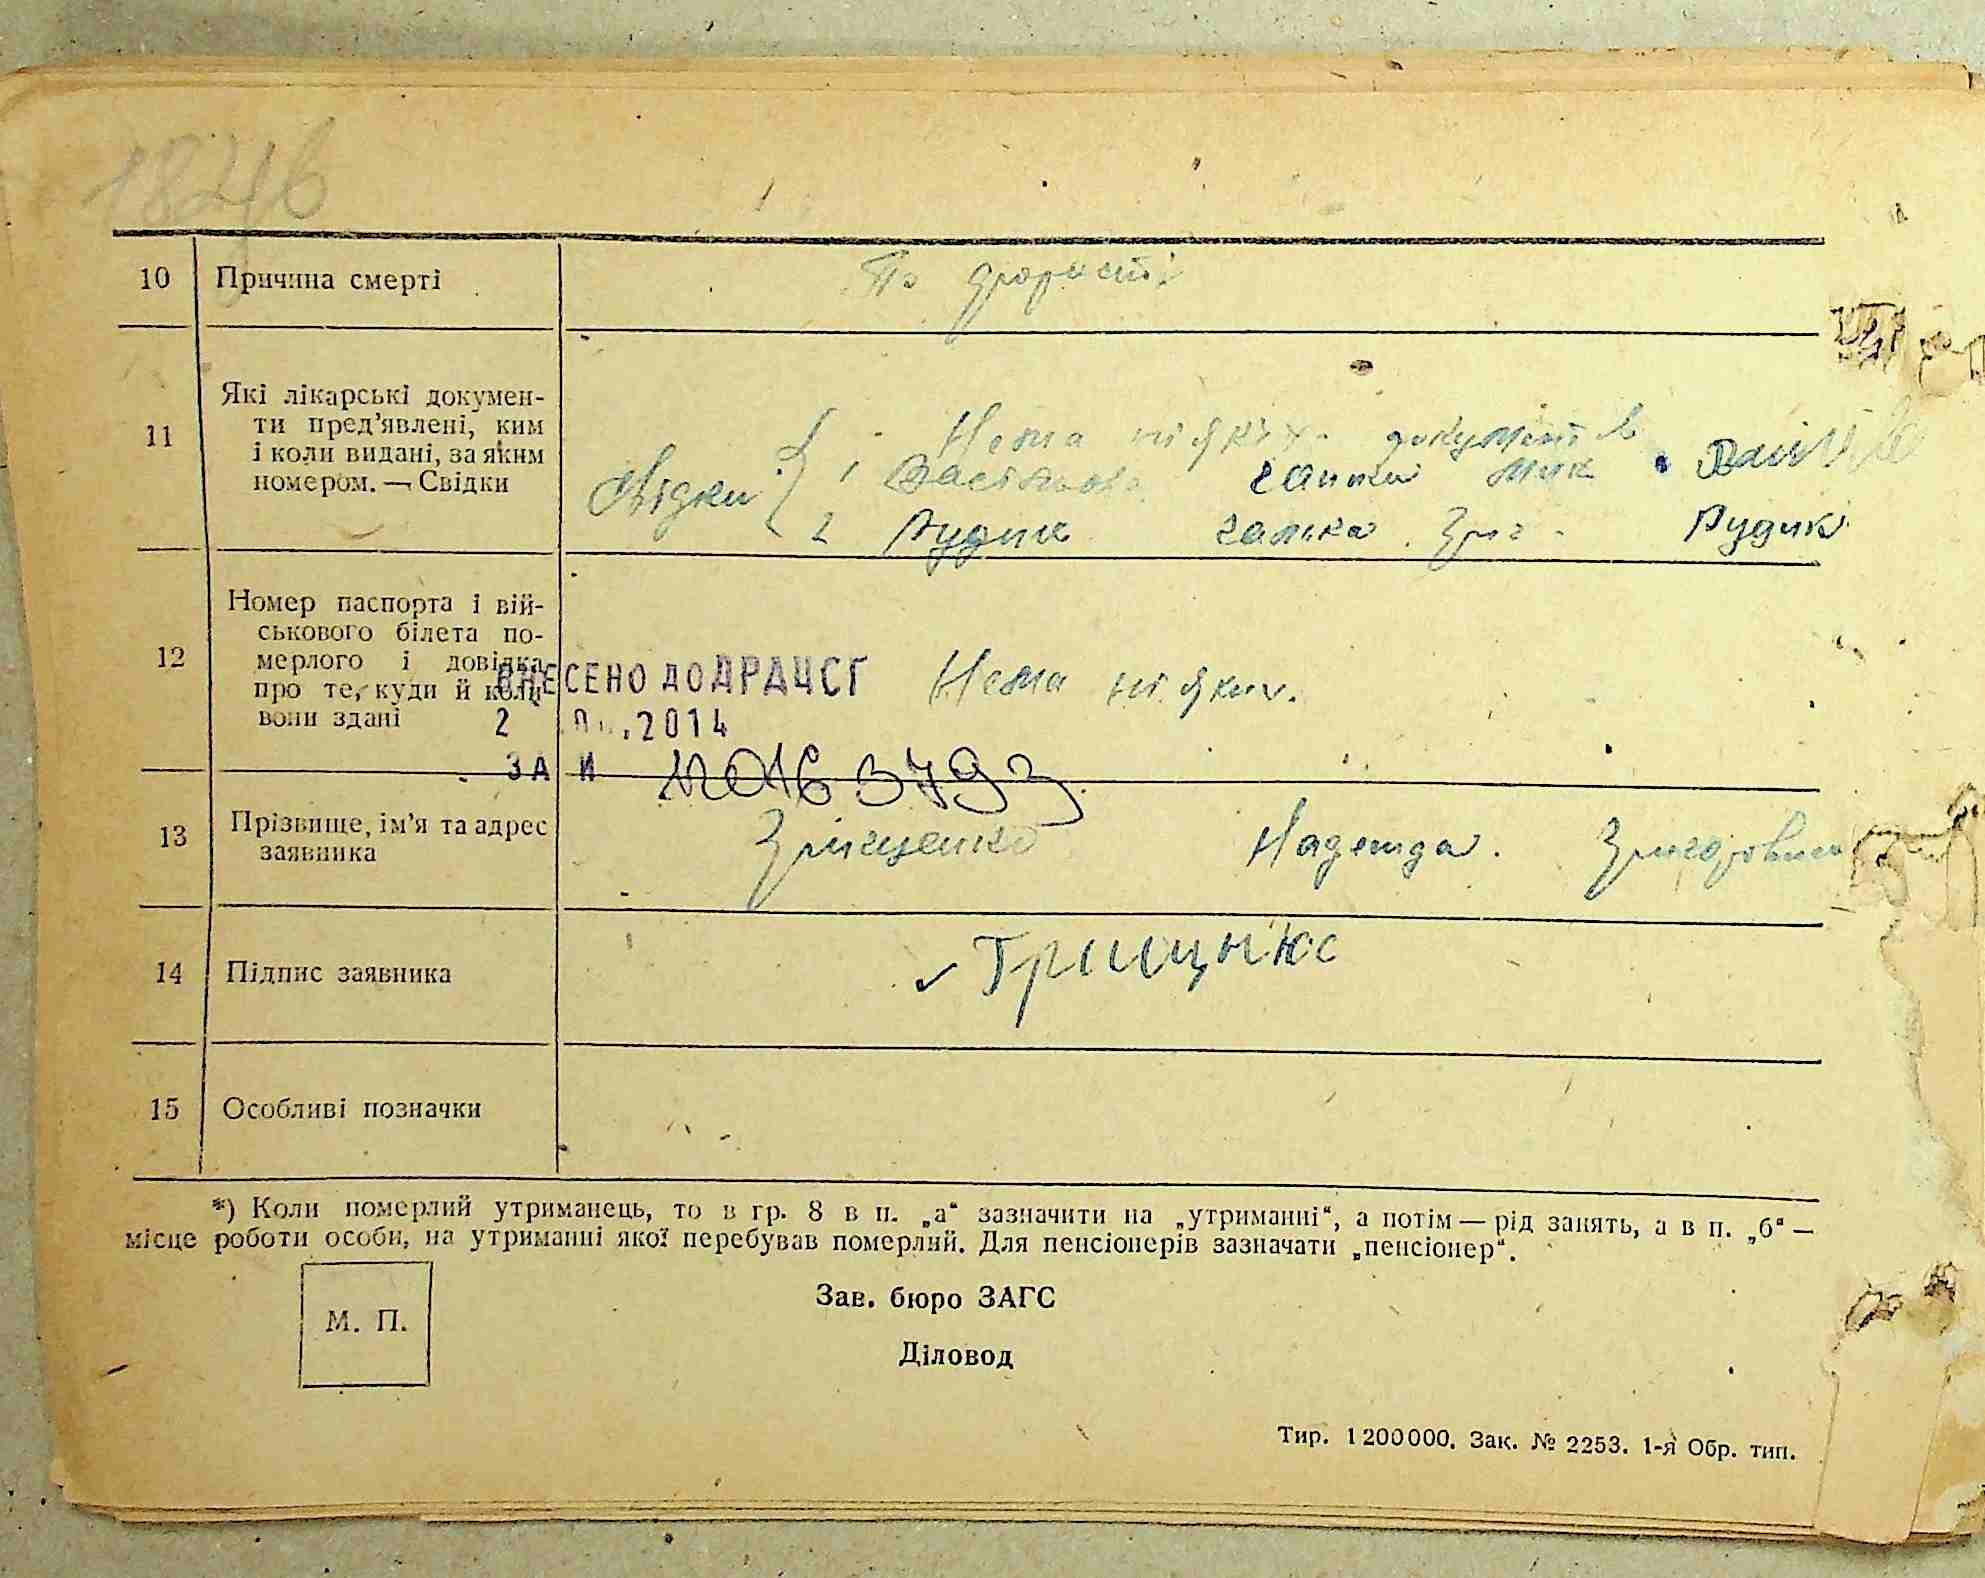 1846
10 Причина смерті По
11 Які лікарські докумен-
ти пред’явлені, ким
і коли видані, за яким
номером. — Свідки
Нема ніяких документів
Свідки 1
2 Рудик Рудик
12 Номер паспорта і вій-
ськового білета по-
мерлого і довідка
про те, куди й коли
вони здані
Нема ніяких.
ВНЕСЕНО ДО ДРАЦСГ
2 .2014
ЗА №
13 Прізвище, ім’я та адрес
заявника
Грищенко Надежда.
14 Підпис заявника
15 Особливі позначки
*) Коли померлий утриманець, то в гр. 8 в п. „а“ зазначити на „утриманні“, а потім — рід занять, а в п. „б“ —
місце роботи особи, на утриманні якої перебував померлий. Для пенсіонерів зазначати „пенсіонер“.
М. П.
Зав. бюро ЗАГС
Діловод
Тир. 1200000. Зак. № 2253. 1-я Обр. тип.